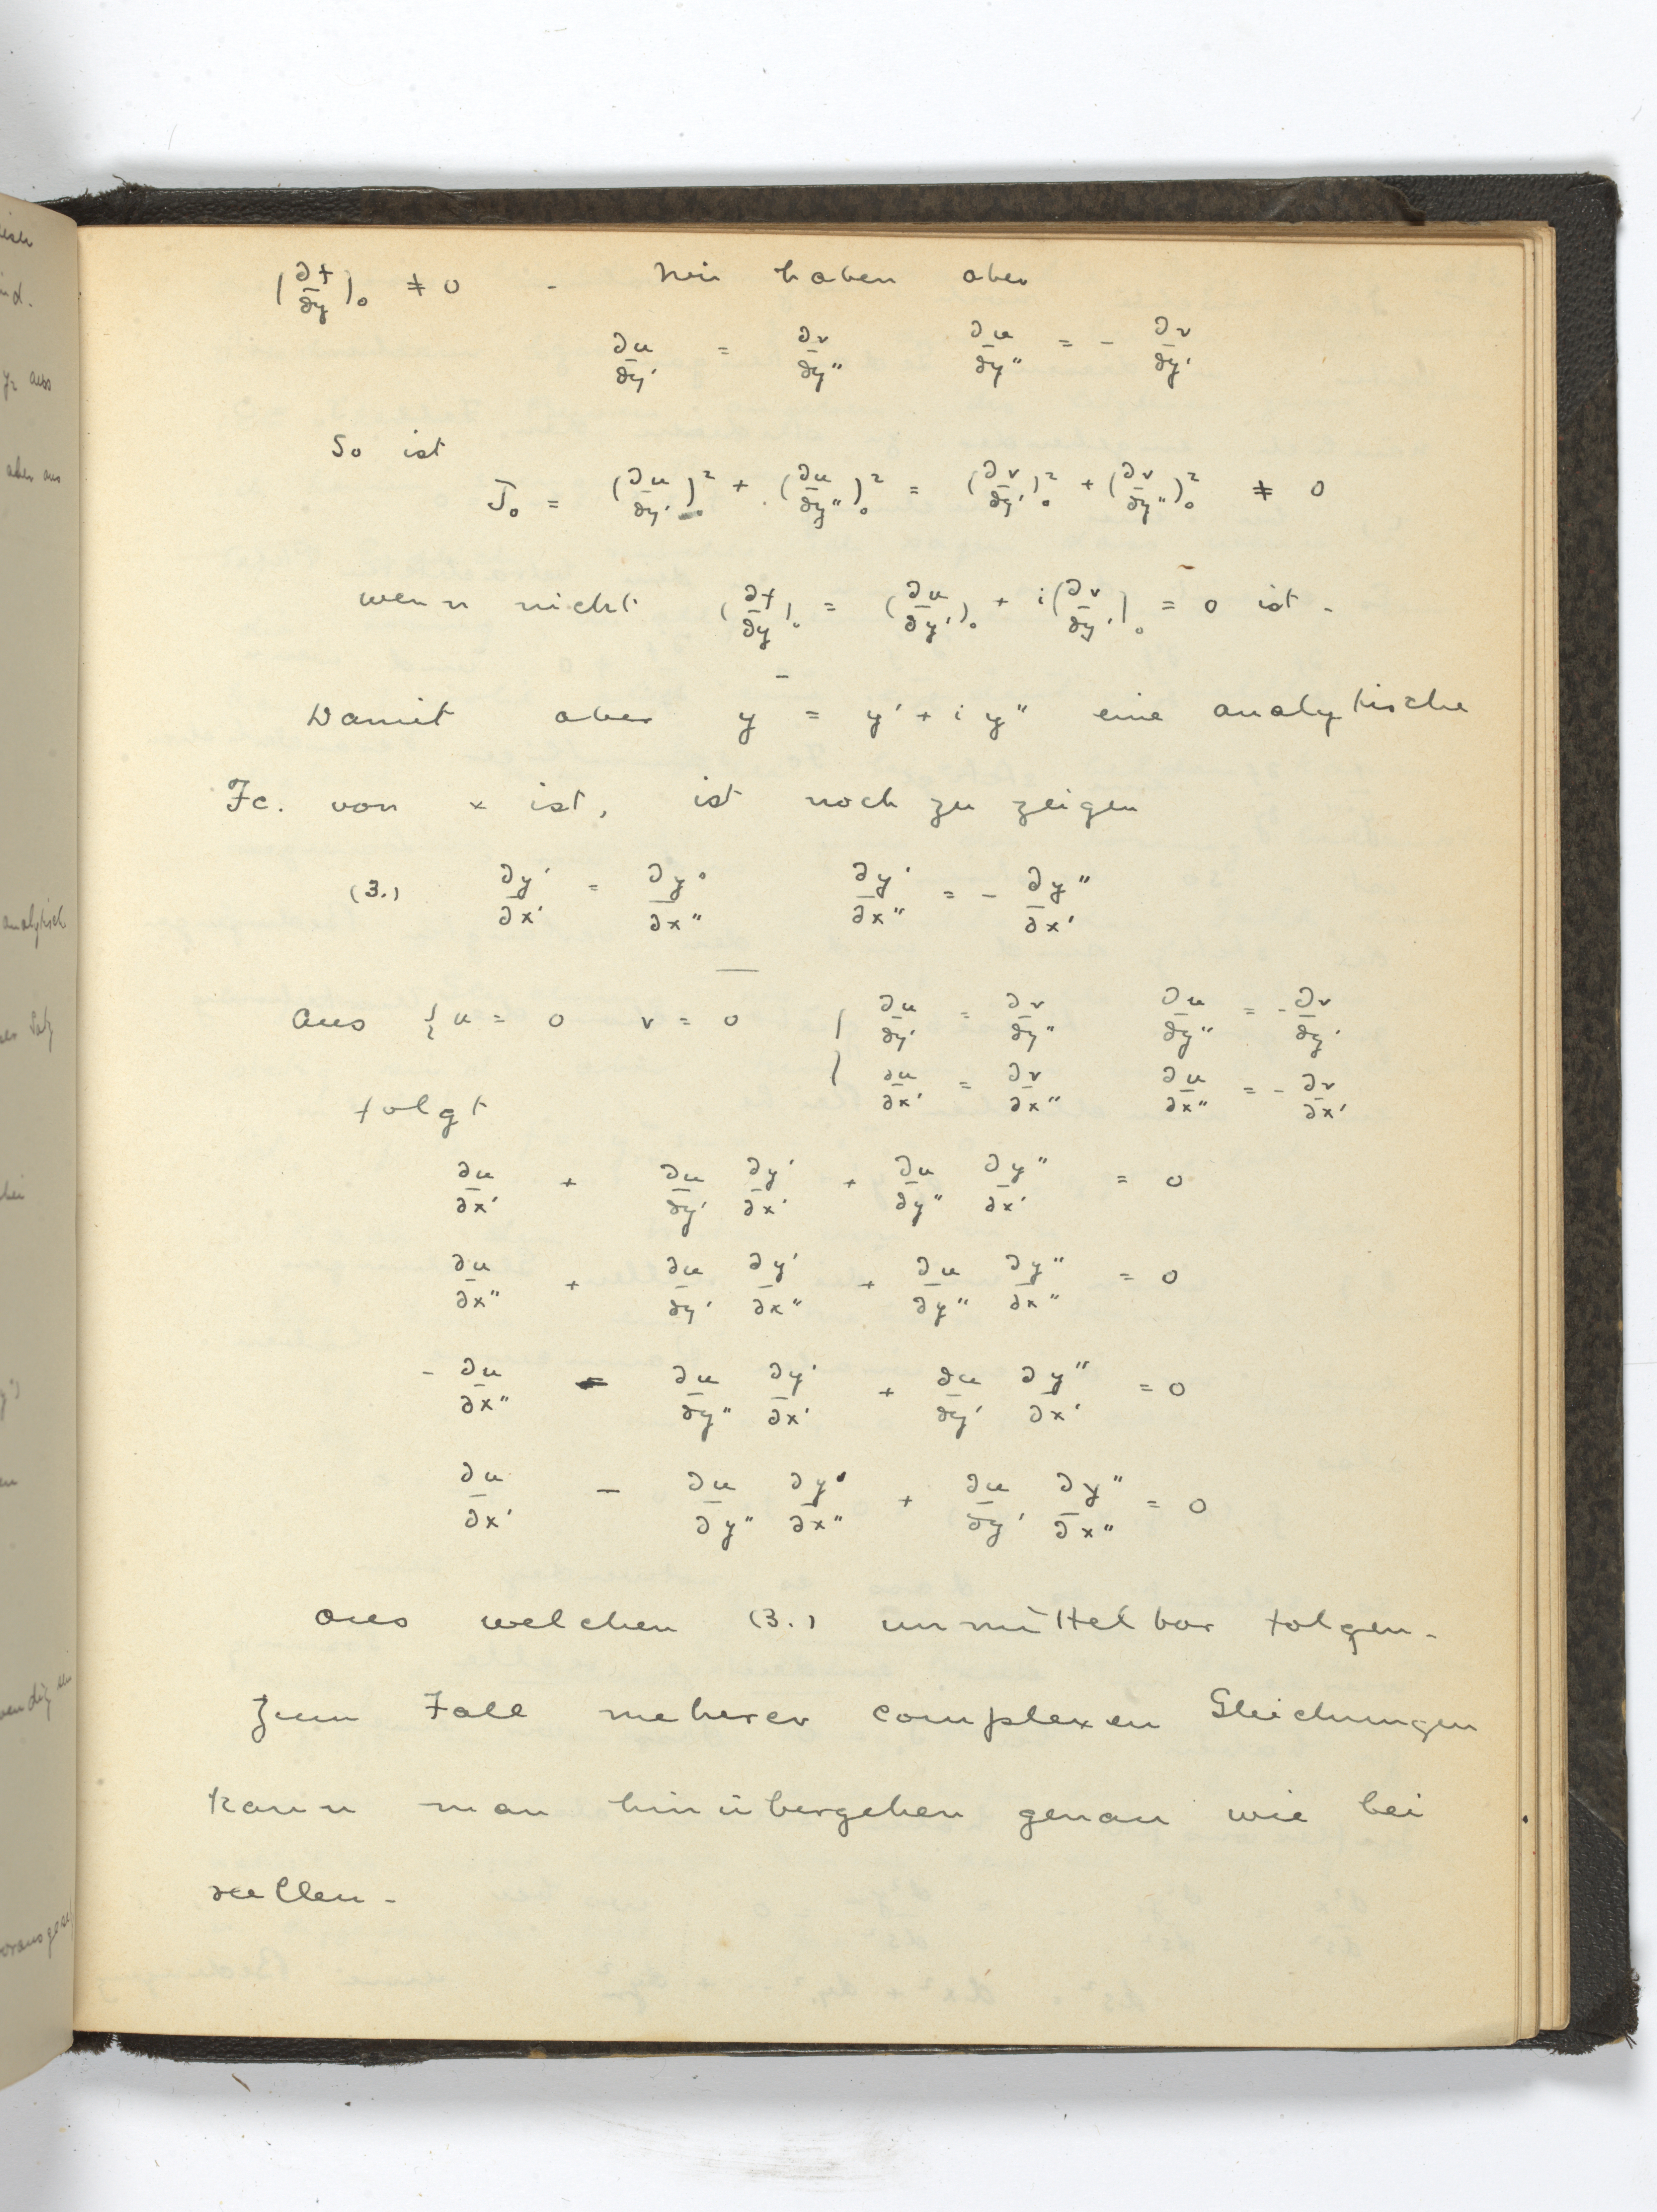 (∂f/∂y)₀ ≠ 0 - Wir haben aber
∂u/∂y' = ∂v/∂y'' ∂u/∂y'' = - ∂v/∂y'
So ist
J₀ = (∂u/∂y')₀² + (∂u/∂y'')₀² = (∂v/∂y')₀² + (∂v/∂y'')₀² ≠ 0
wenn nicht (∂f/∂y)₀ = (∂u/∂y')₀ + i(∂v/∂y')₀ = 0 ist -
Damit aber y = y' + i y'' eine analytische
Fc. von x ist, ist noch zu zeigen
(3.) ∂y'/∂x' = ∂y''/∂x'' ∂y'/∂x'' = - ∂y''/∂x'
Aus { u = 0 v = 0 { ∂u/∂y' = ∂v/∂y'' ∂u/∂y'' = - ∂v/∂y'
∂u/∂x' = ∂v/∂x'' ∂u/∂x'' = - ∂v/∂x'
folgt
∂u/∂x' + ∂u/∂y' ∂y'/∂x' + ∂u/∂y'' ∂y''/∂x' = 0
∂u/∂x'' + ∂u/∂y' ∂y'/∂x'' + ∂u/∂y'' ∂y''/∂x'' = 0
- ∂u/∂x'' - ∂u/∂y'' ∂y'/∂x' + ∂u/∂y' ∂y''/∂x' = 0
∂u/∂x' - ∂u/∂y'' ∂y'/∂x'' + ∂u/∂y' ∂y''/∂x'' = 0
aus welchen (3.) unmittelbar folgen -
Zum Fall meherer complexen Gleichungen
kann man hinübergehen genau wie bei
reellen -